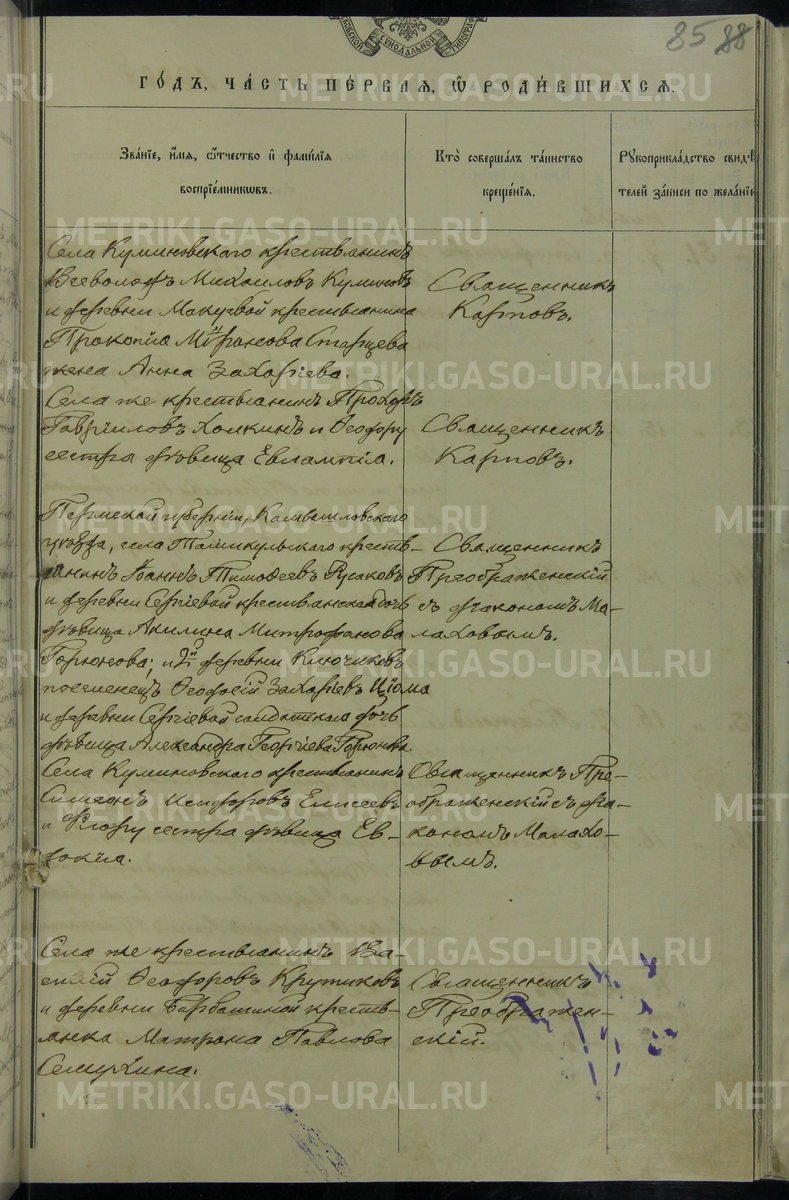 85 88
МОСКОВСКОЙ СѴНОДАЛЬНОЙ ТИПОГРАФІИ
ГО́ДЪ, ЧА́СТЬ ПЕ́РВАЯ, Ѡ҆ РОДИ́ВШИХСЯ.
Зва́нїе, и҆́мя, ѻ҆́тчество и҆ фами́лїя воспрїе́мникѡвъ.
Кто̀ соверша́лъ та́инство креще́нїя.
Рꙋкоприкла́дство свидѣ́телей за́писи по жела́нїю
Села Куминовскаго крестьянинъ
Всеволодъ Михаиловъ Куминовъ
и деревни Макуевой крестьянина
Прокопія Старцева
жена Анна Захаріева.
Священникъ
Карповъ.
Села же крестьянинъ Прохоръ
Гавріиловъ Холкинъ и Ѳеодору
сестра дѣвица Евлампія.
Священникъ
Карповъ.
Пермской губерніи, Камышловскаго
уѣзда, села Талицкульскаго кресть-
янинъ Іоаннъ Тимоѳеевъ Русаковъ
и деревни Сергіевой крестьянская дочь
дѣвица Акилина Митрофанова
Горюнова; и 2й деревни Ключиковъ
поселенецъ Ѳеодосій Захаріевъ Цюма
и деревни Сергіевой солдатская дочь
дѣвица Александра Георгіева Горюнова.
Священникъ
Преображенскій
съ діакономъ Ма-
лаховымъ.
Села Куминовскаго крестьянинъ
Симеонъ Исидоровъ Елисеевъ
и Флору сестра дѣвица Ев-
докія.
Священникъ Пре-
ображенскій съ діа-
кономъ Малахо-
вымъ.
Села же крестьянинъ Ва-
силій Ѳеодоровъ Крутиковъ
и деревни Барбашиной кресть-
янка Матрона Павлова
Семухина.
Священникъ
Преображен-
скій.
METRIKI.GASO-URAL.RU